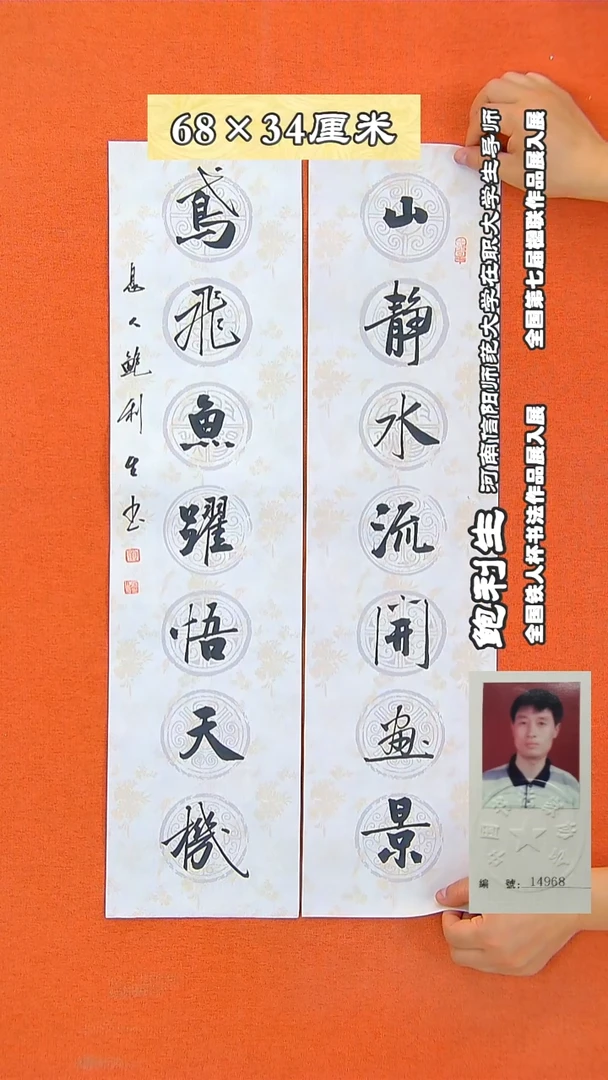 68×34厘米
山静水流開畫景
鳶飛魚躍悟天機
息人鮑利生书
鲍利生
河南信阳师范大学在职大学生导师
全国铁人杯书法作品展入展
全国第七届楹联作品展入展
編 號: 14968